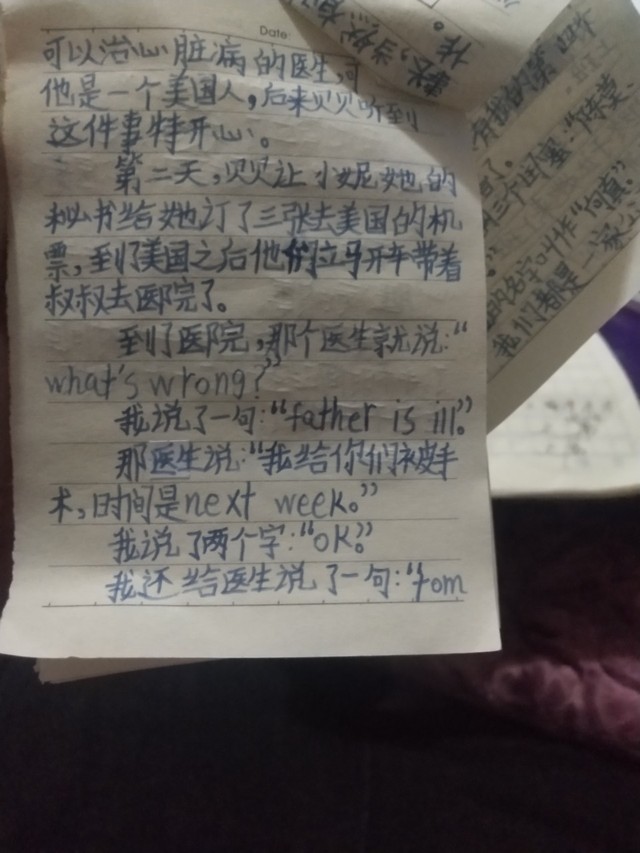 Date:
可以治心脏病的医生,可
他是一个美国人,后来贝贝听到
这件事特开心。
第二天,贝贝让小妮她的
秘书给她订了三张去美国的机
票,到了美国之后他们立马开车带着
叔叔去医院了。
到了医院,那个医生就说:“
what's wrong?”
我说了一句:“father is ill。”
那医生说:“我给你们做手
术,时间是next week。”
我说了两个字:“ok。”
我还给医生说了一句:“from
我们都是一家